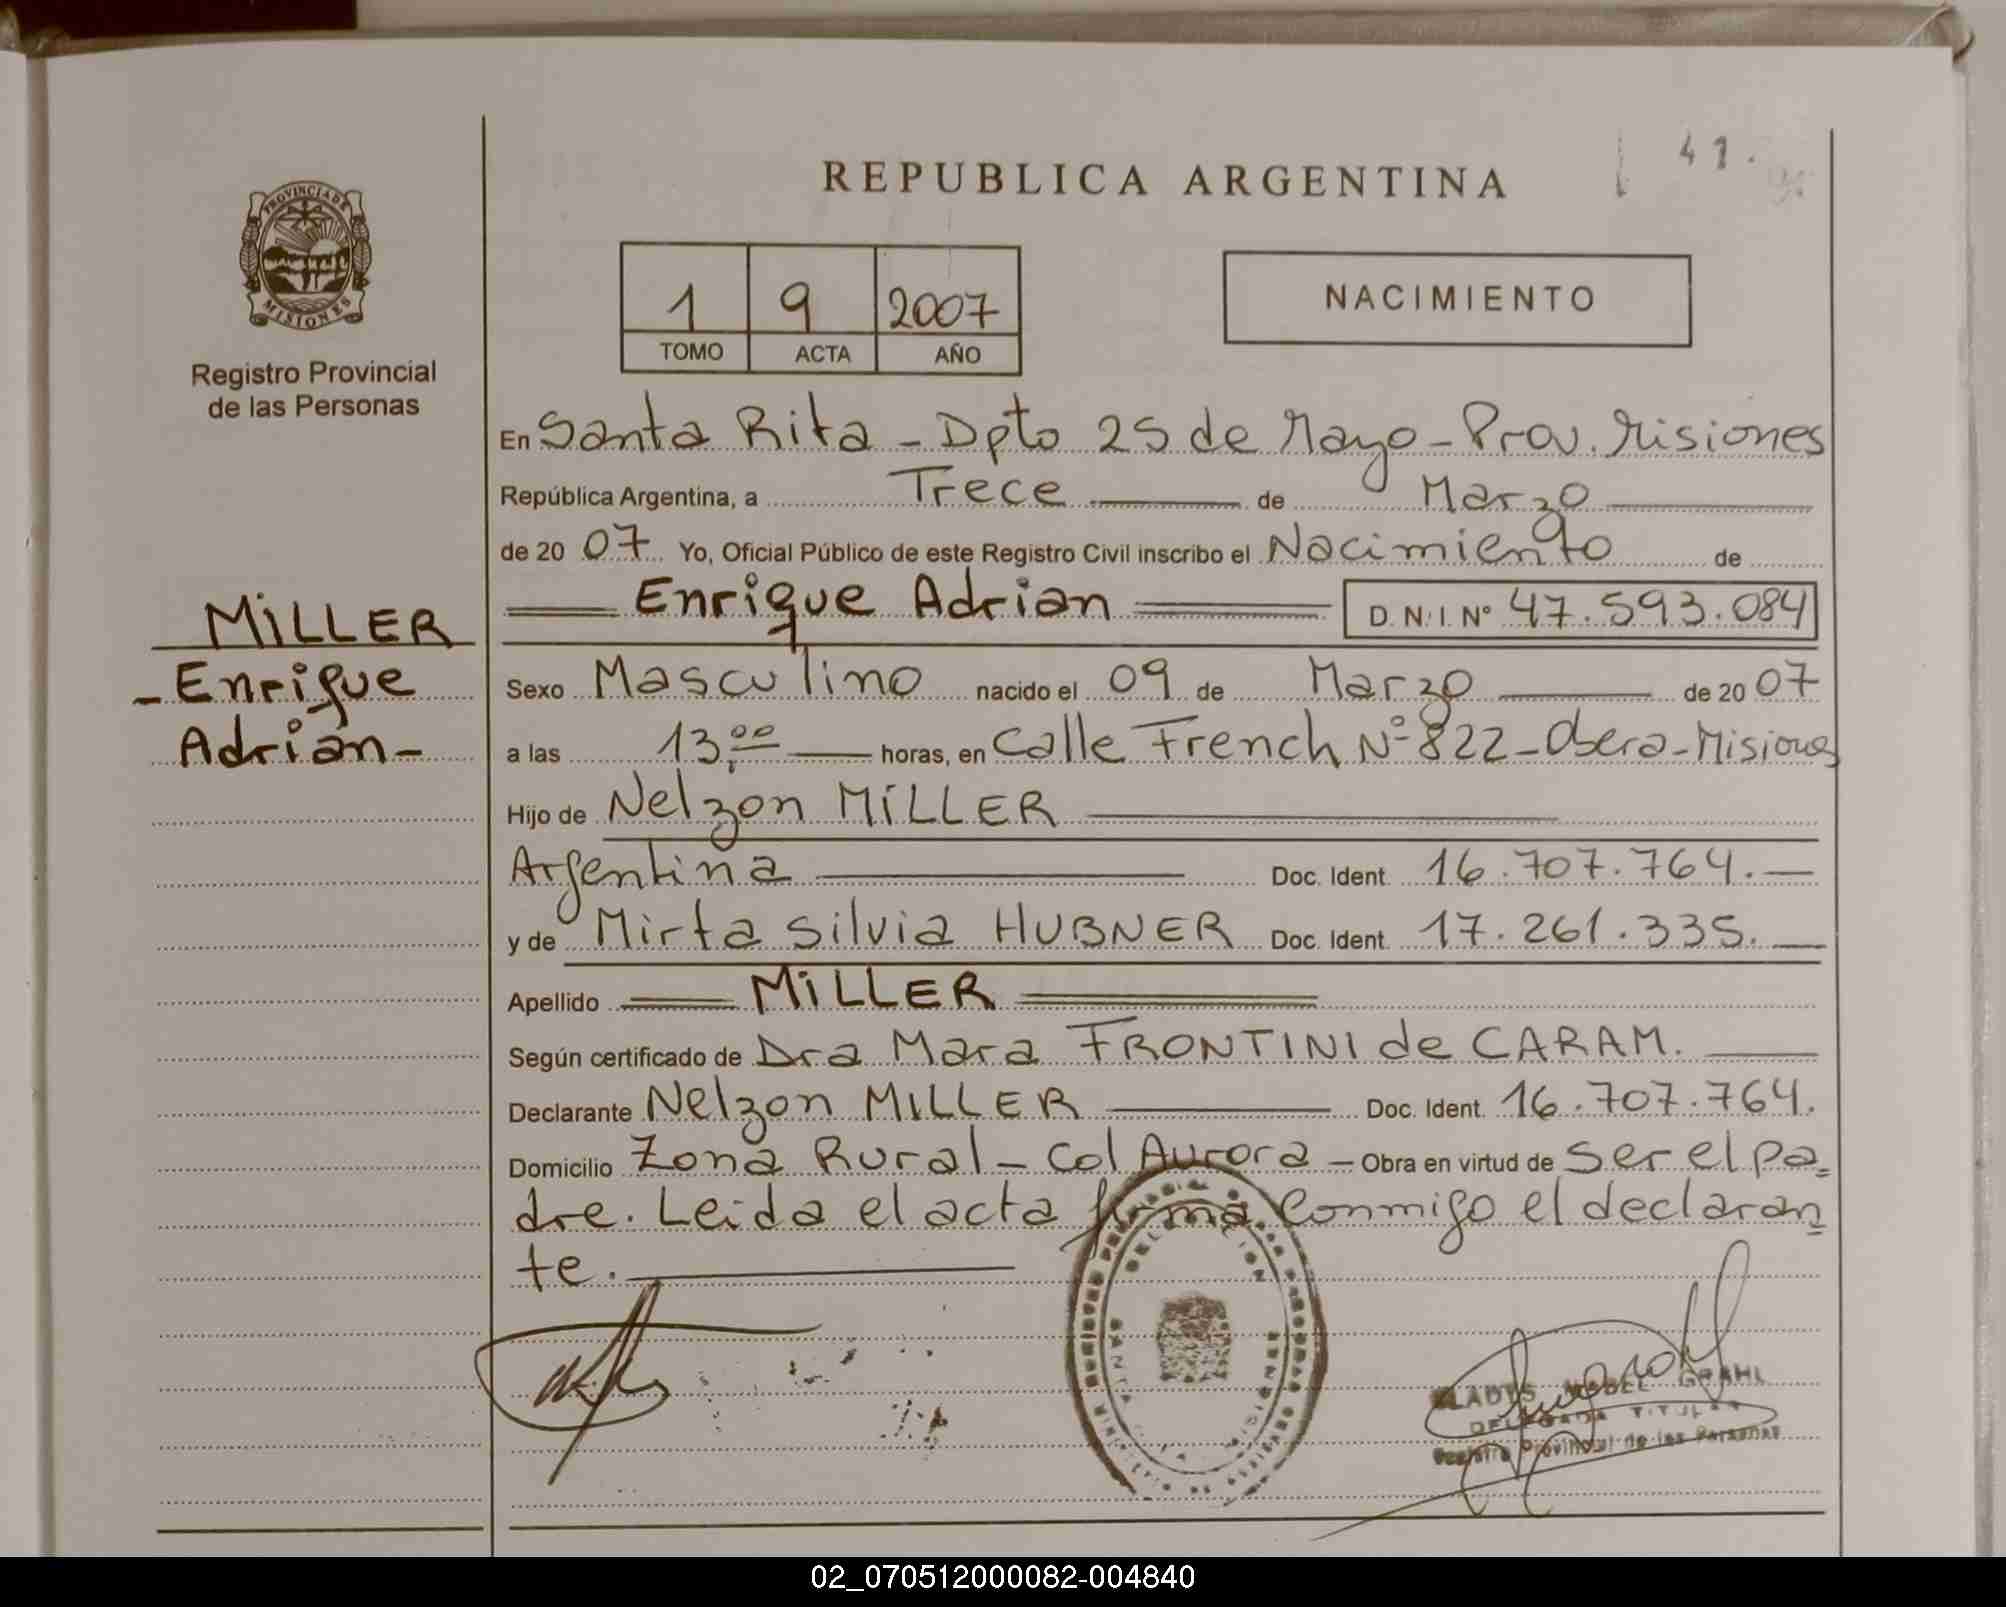 REPUBLICA ARGENTINA
41.
PROVINCIA DE
MISIONES
Registro Provincial
de las Personas
1 9 2007
TOMO ACTA AÑO
NACIMIENTO
En Santa Rita - Dpto 25 de Mayo - Prov. Misiones
República Argentina, a Trece de Marzo
de 2007 Yo, Oficial Público de este Registro Civil inscribo el Nacimiento de
Enrique Adrian D.N.I. Nº 47.593.084
MiLLER
- Enrique
Adrian -
Sexo Masculino nacido el 09 de Marzo de 2007
a las 13,00 horas, en Calle French Nº 822 - Obera - Misiones
Hijo de Nelzon MiLLER
Argentina Doc. Ident. 16.707.764.
y de Mirta Silvia HUBNER Doc. Ident. 17.261.335.
Apellido MiLLER
Según certificado de Dra Mara FRONTINI de CARAM.
Declarante Nelzon MILLER Doc. Ident. 16.707.764.
Domicilio Zona Rural - Col Aurora - Obra en virtud de Ser el pa=
dre. Leida el acta firma conmigo el declaran=
te.
SANTA
GLADYS MABEL GRAHL
DELEGADA TITULAR
Registro Provincial de las Personas
02_070512000082-004840